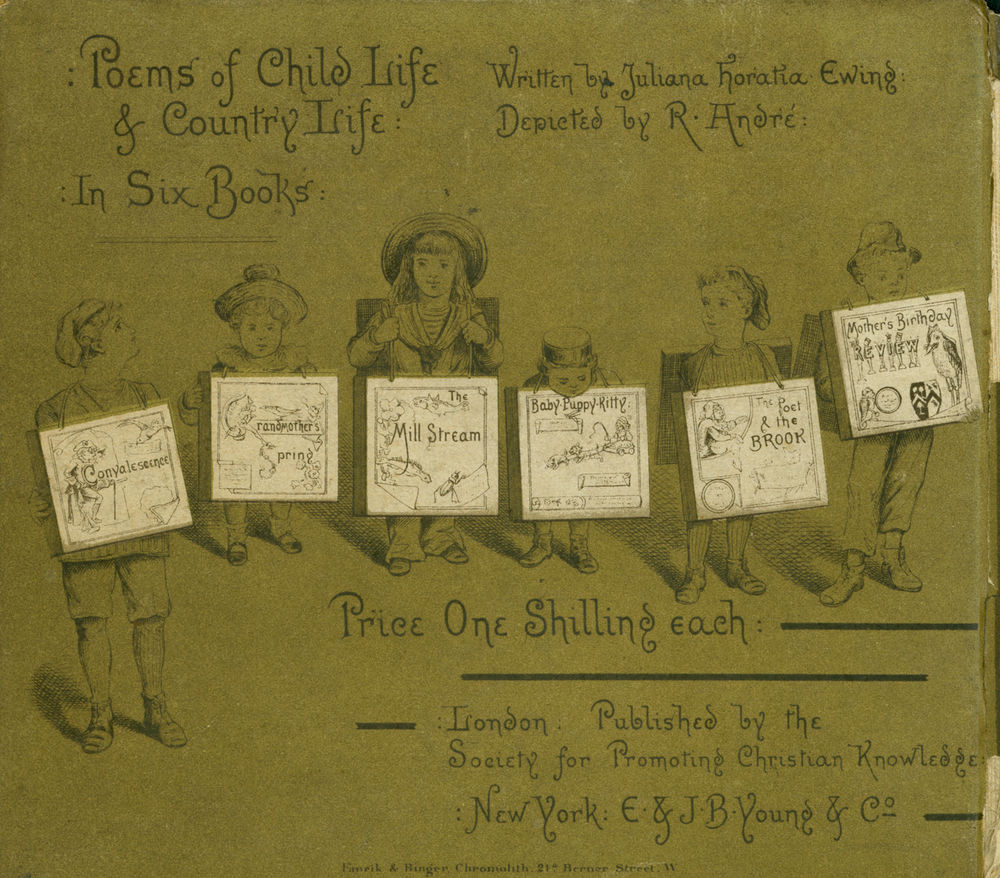 : Poems of Child Life
& Country Life :
: In Six Books :
Written by Juliana Horatia Ewing :
Depicted by R. André :
Convalescence
Grandmother's
Spring
The
Mill Stream
Baby Puppy Kitty
The Poet
& the
BROOK
Mother's Birthday
REVIEW
Price One Shilling each :
: London : Published by the
Society for Promoting Christian Knowledge :
: New York : E. & J. B. Young & Co
Emrik & Binger, Chromolith, 21A Berner Street, W